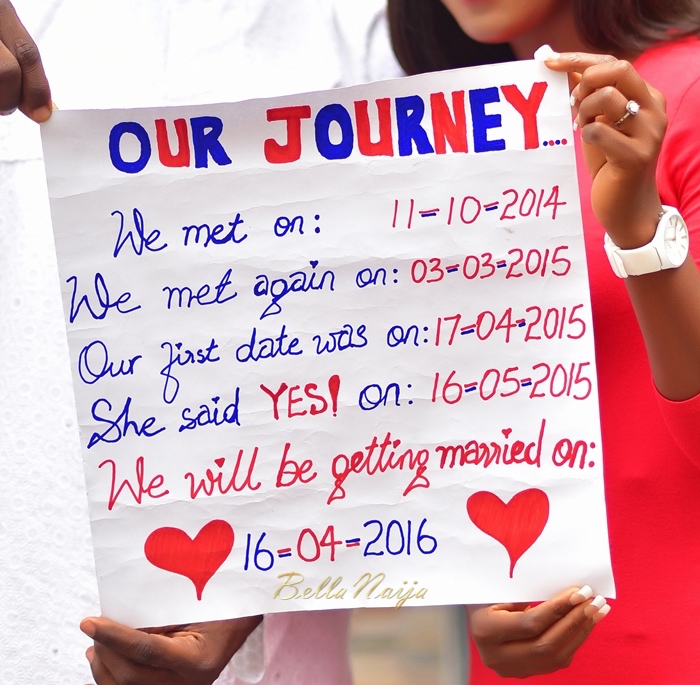 OUR JOURNEY....
We met on: 11-10-2014
We met again on: 03-03-2015
Our first date was on: 17-04-2015
She said YES! on: 16-05-2015
We will be getting married on:
16-04-2016
BellaNaija